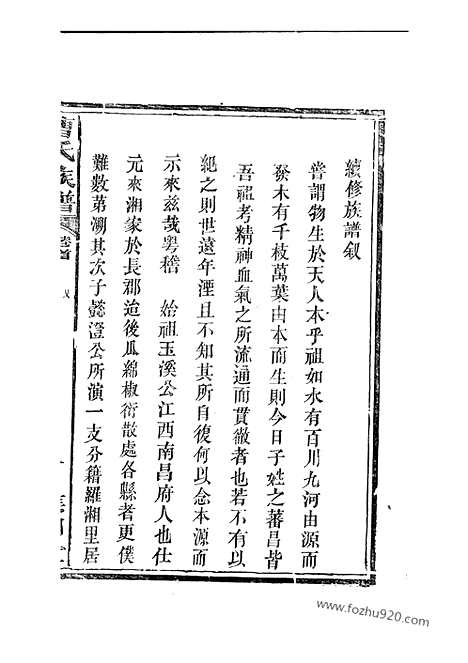 續修族譜叙
嘗謂物生於天人本乎祖如水有百川九河由源而
發木有千枝萬葉由本而生則今日子姓之蕃昌皆
吾祖考精神血氣之所流通而貫徹者也若不有以
紀之則世遠年湮且不知其所自復何以念本源而
示來茲哉粵稽 始祖玉溪公江西南昌府人也仕
元來湘家於長郡迨後瓜綿椒衍散處各縣者更僕
難數第溯其次子懿澄公所演一支分籍羅湘里居
曹氏族譜
卷首
叙
www.fozhu920.com